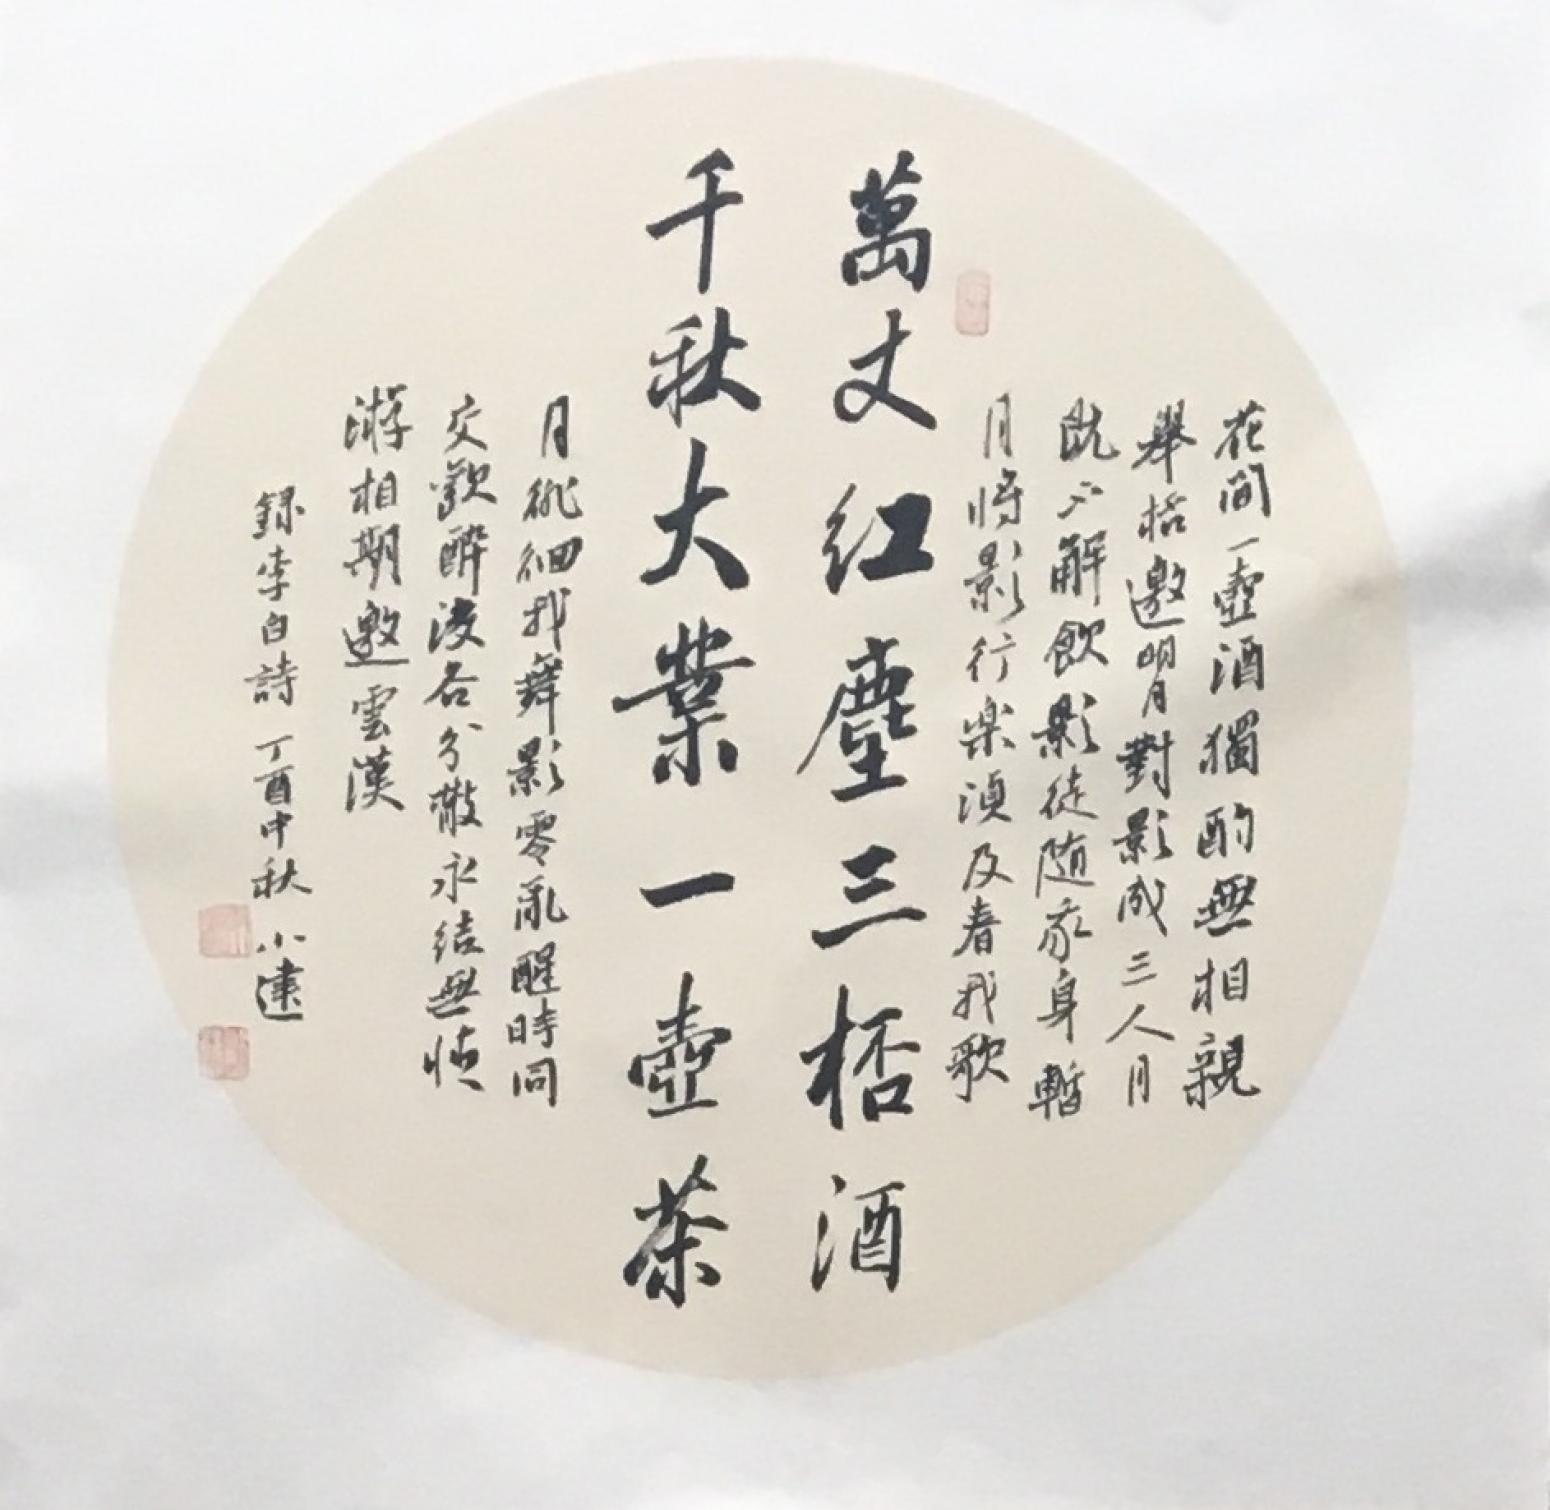 花間一壺酒獨酌無相親
舉桮邀明月對影成三人月
既不解飲影徒随我身暫
月将影行楽須及春我歌
萬丈红塵三桮酒
千秋大業一壺茶
月徘徊我舞影零亂醒時同
交歡醉後各分散永结無情
游相期邈雲漢
録李白詩 丁酉中秋 小建